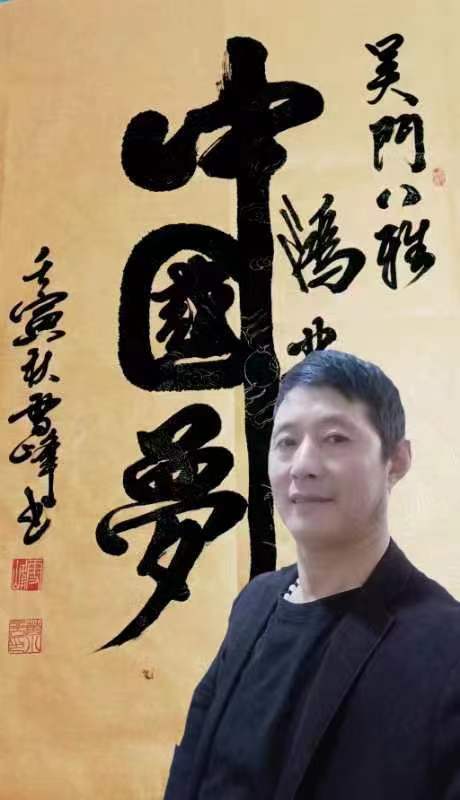 吴門八雅
鴻
中國夢
壬寅秋雪峰书